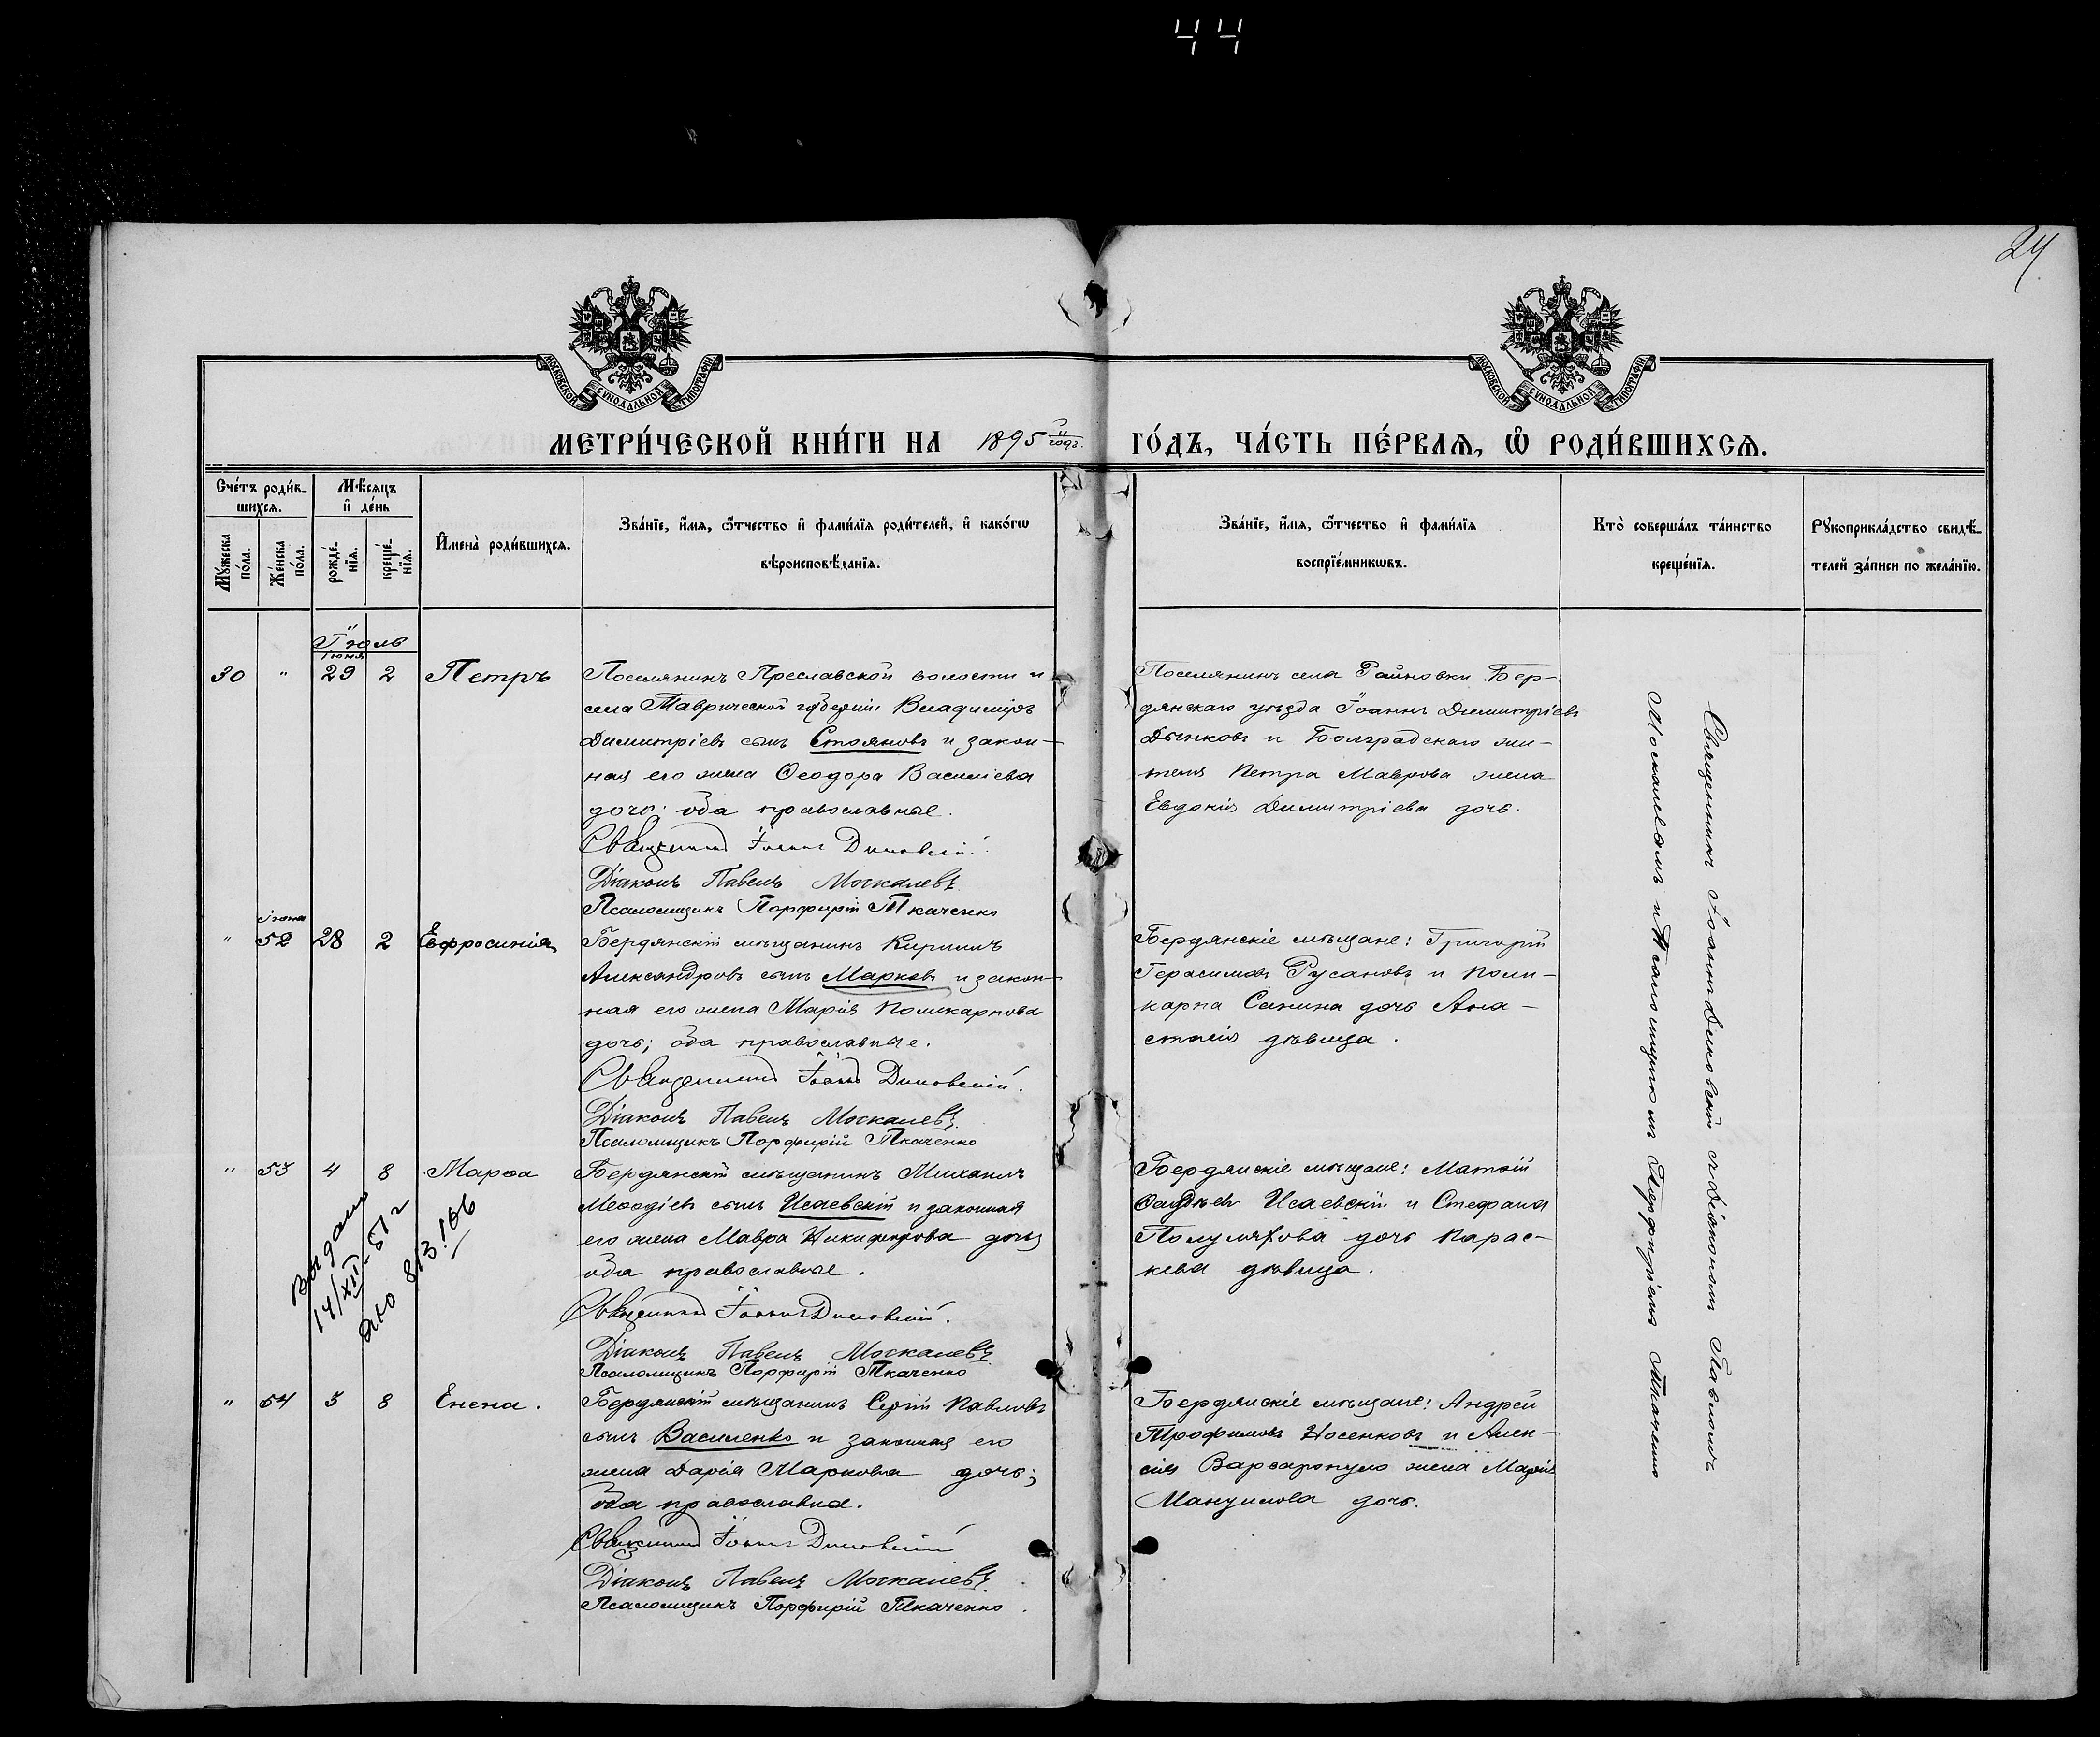 44
24
МОСКОВСКОЙ СУНОДАЛЬНОЙ ТИПОГРАФІИ
МОСКОВСКОЙ СУНОДАЛЬНОЙ ТИПОГРАФІИ
МЕТРИ́ЧЕСКОЙ КНИ́ГИ НА 1895 годъ. ГО́ДЪ, ЧА́СТЬ ПЕ́РВАЯ, Ѡ҆ РОДИ́ВШИХСЯ.
Сче́тъ роди́в-
шихся.
Мꙋжеска по́ла.
Же́нска по́ла.
Мѣ́сяцъ
и҆ де́нь
рожде́-
нїя.
креще́-
нїя.
И҆мена̀ роди́вшихся.
Зва́нїе, и҆́мя, ѻ҆́тчество и҆ фами́лїя роди́телей, и҆ како́гѡ
вѣроисповѣ́данїя.
Зва́нїе, и҆́мя, ѻ҆́тчество и҆ фами́лїя
воспрїе́мникѡвъ.
Кто̀ соверша́лъ та́инство
креще́нїя.
Рꙋкоприкла́дство свидѣ́-
телей за́писи по жела́нїю.
Іюль
Іюня
30 " 29 2 Петръ
Поселянинъ Преславской волости и
села Таврической губерніи Владиміръ
Димитріевъ сынъ Стояновъ и закон-
ная его жена Ѳеодора Василіева
дочь; оба православные.
Священникъ Іоаннъ Димовскій.
Діаконъ Павелъ Москалевъ
Псаломщикъ Порфирій Ткаченко
Поселянинъ села Райновки Бер-
дянскаго уѣзда Іоаннъ Димитріевъ
Дынковъ и Болградскаго жи-
теля Петра Маврова жена
Евдокія Димитріева дочь.
Іюня
" 52 28 2 Евфросинія
Бердянскій мѣщанинъ Кириллъ
Александровъ сынъ Марковъ и закон-
ная его жена Марія Поликарпова
дочь; оба православные.
Священникъ Іоаннъ Димовскій.
Діаконъ Павелъ Москалевъ.
Псаломщикъ Порфирій Ткаченко
Бердянскіе мѣщане: Григорій
Герасимовъ Русановъ и Поли-
карпа Санина дочь Ана-
стасія дѣвица.
" 53 4 8 Марѳа
Выдано
14/XII-51 г
813166
Бердянскій мѣщанинъ Михаилъ
Меѳодіевъ сынъ Исаевскій и законная
его жена Мавра Никифорова дочь
оба православные.
Священникъ Іоаннъ Димовскій.
Діаконъ Павелъ Москалевъ
Псаломщикъ Порфирій Ткаченко
Бердянскіе мѣщане: Матѳій
Ѳаддѣевъ Исаевскій и Стефана
Полуляхова дочь Парас-
кева дѣвица.
" 54 5 8 Елена.
Бердянскій мѣщанинъ Сергій Павловъ
сынъ Василенко и законная его
жена Дарія Маркова дочь;
оба православные.
Священникъ Іоаннъ Димовскій
Діаконъ Павелъ Москалевъ.
Псаломщикъ Порфирій Ткаченко.
Бердянскіе мѣщане: Андрей
Трофимовъ Носенковъ и Алек-
сія жена Марія
Мануилова дочь.
Священникъ Іоаннъ Димовскій съ Діакономъ Павломъ
Москалевымъ и Псаломщикомъ Порфиріемъ Ткаченко